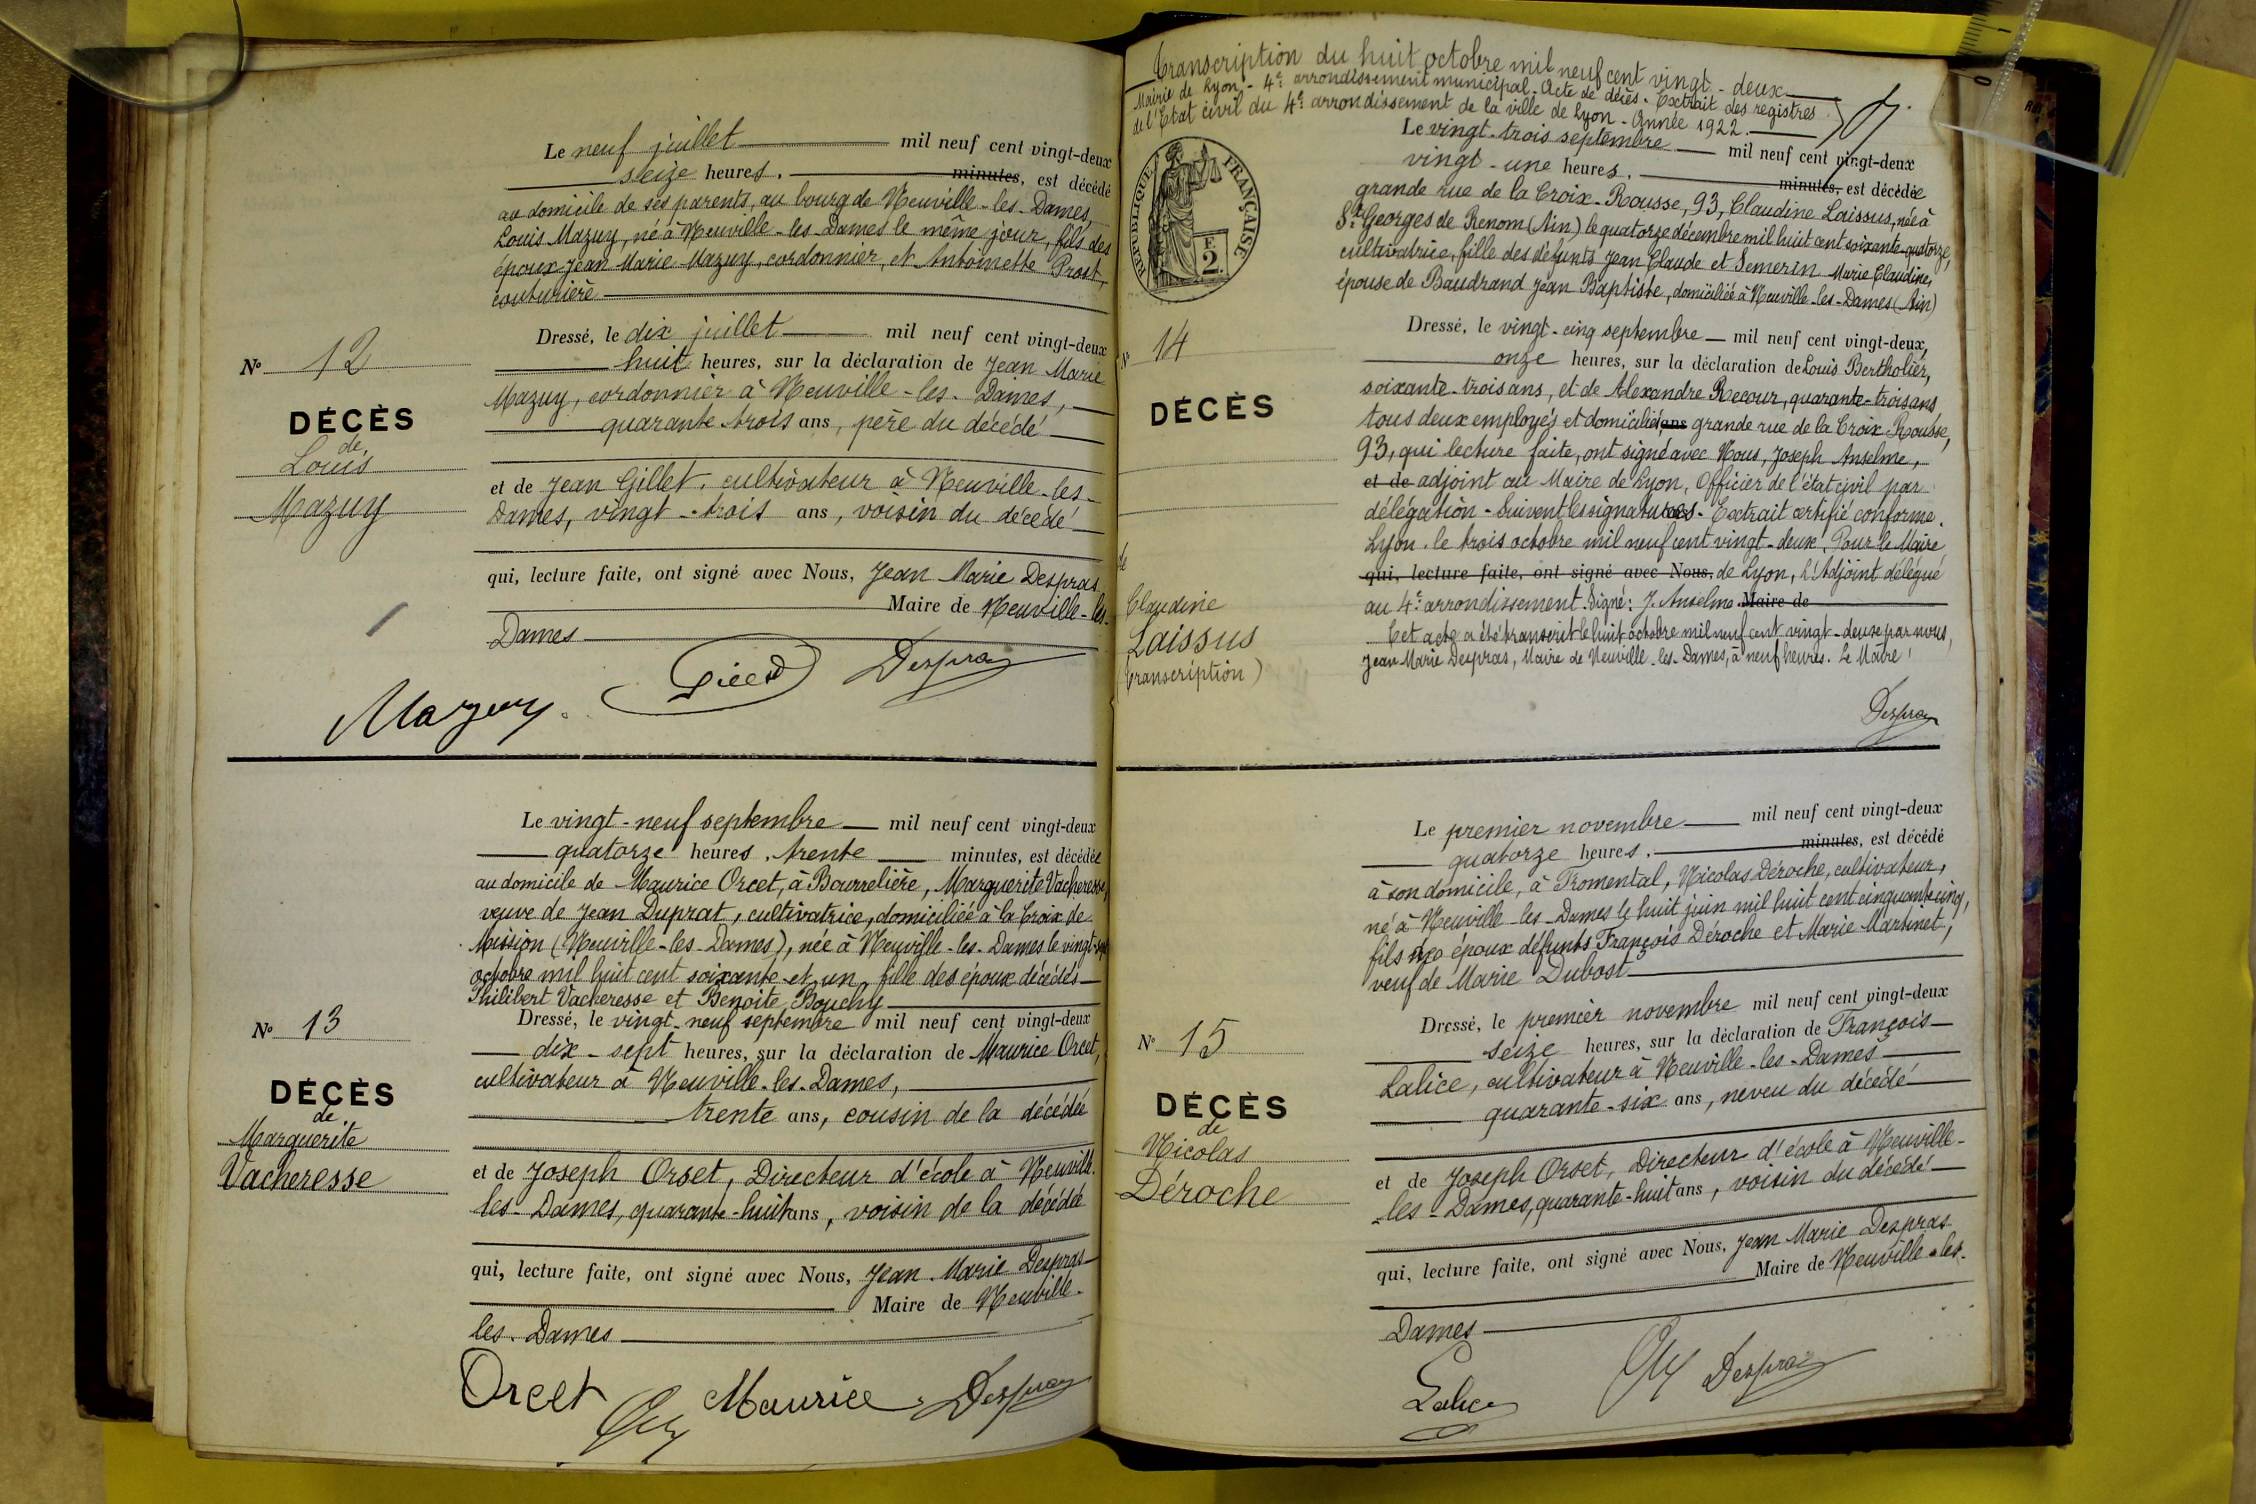 Le neuf juillet mil neuf cent vingt-deux
seize heures, minutes, est décédé
au domicile de ses parents, au bourg de Neuville-les-Dames,
Louis Mazuy, né à Neuville-les-Dames le même jour, fils des
époux Jean Marie Mazuy, cordonnier, et Antoinette Prost,
couturière
Dressé, le dix juillet mil neuf cent vingt-deux
huit heures, sur la déclaration de Jean Marie
Mazuy, cordonnier à Neuville-les-Dames,
quarante-trois ans, père du décédé
et de Jean Gillet, cultivateur à Neuville-les-
Dames, vingt-trois ans, voisin du décédé
qui, lecture faite, ont signé avec Nous, Jean Marie Despras
Maire de Neuville-les-
Dames
Mazuy Despras
N° 12
DÉCÈS
de
Louis
Mazuy
Le vingt-neuf septembre mil neuf cent vingt-deux
quatorze heures, trente minutes, est décédée
au domicile de Maurice Orcet, à Bourrelière, Marguerite Vacheresse,
veuve de Jean Duprat, cultivatrice, domiciliée à la Croix de
Mission (Neuville-les-Dames), née à Neuville-les-Dames le vingt-sept
octobre mil huit cent soixante-et-un, fille des époux décédés
Philibert Vacheresse et Benoite Bouchy
Dressé, le vingt-neuf septembre mil neuf cent vingt-deux
dix-sept heures, sur la déclaration de Maurice Orcet,
cultivateur à Neuville-les-Dames,
trente ans, cousin de la décédée
et de Joseph Orset, Directeur d'école à Neuville-
les-Dames, quarante-huit ans, voisin de la décédée
qui, lecture faite, ont signé avec Nous, Jean Marie Despras
Maire de Neuville-
les-Dames
Orcet Maurice Despras
N° 13
DÉCÈS
de
Marguerite
Vacheresse
Transcription du huit octobre mil neuf cent vingt-deux
Mairie de Lyon - 4e arrondissement municipal. Acte de décès. Extrait des registres
de l'Etat civil du 4e arrondissement de la ville de Lyon - Année 1922.
RÉPUBLIQUE FRANÇAISE
2 F.
Le vingt-trois septembre mil neuf cent vingt-deux
vingt-une heures, minutes, est décédée
grande rue de la Croix-Rousse, 93, Claudine Laissus, née à
St Georges de Renom (Ain) le quatorze décembre mil huit cent soixante-quatorze,
cultivatrice, fille des défunts Jean Claude et Semerin Marie Claudine,
épouse de Baudrand Jean Baptiste, domiciliée à Neuville-les-Dames (Ain)
Dressé, le vingt-cinq septembre mil neuf cent vingt-deux,
onze heures, sur la déclaration de Louis Bertholier,
soixante-trois ans, et de Alexandre Recour, quarante-trois ans,
tous deux employés et domiciliés ans grande rue de la Croix-Rousse,
93, qui lecture faite, ont signé avec Nous, Joseph Anselme,
et de adjoint au Maire de Lyon, Officier de l'état civil par
délégation - Suivent les signatures - Extrait certifié conforme.
Lyon, le trois octobre mil neuf cent vingt-deux, Pour le Maire
qui, lecture faite, ont signé avec Nous, de Lyon, L'Adjoint délégué
au 4e arrondissement. Signé: J. Anselme. Maire de
Cet acte a été transcrit le huit octobre mil neuf cent vingt-deux par nous,
Jean Marie Despras, Maire de Neuville-les-Dames, à neuf heures. Le Maire
Despras
N° 14
DÉCÈS
de
Claudine
Laissus
(transcription)
Le premier novembre mil neuf cent vingt-deux
quatorze heures, minutes, est décédé
à son domicile, à Fromental, Nicolas Déroche, cultivateur,
né à Neuville-les-Dames le huit juin mil huit cent cinquante cinq,
fils des époux défunts François Déroche et Marie Martinet,
veuf de Marie Dubost
Dressé, le premier novembre mil neuf cent vingt-deux
seize heures, sur la déclaration de François
Lalice, cultivateur à Neuville-les-Dames
quarante-six ans, neveu du décédé
et de Joseph Orset, Directeur d'école à Neuville-
-les-Dames, quarante-huit ans, voisin du décédé
qui, lecture faite, ont signé avec Nous, Jean Marie Despras
Maire de Neuville-les-
Dames
Lalice Despras
N° 15
DÉCÈS
de
Nicolas
Déroche